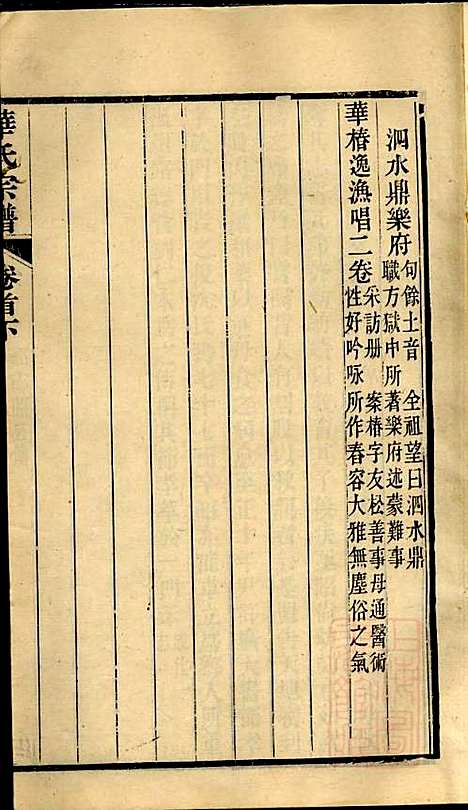 泗水鼎樂府 句餘土音 全祖望曰泗水鼎
職方獄中所著樂府述蒙難事
華椿逸漁唱二卷 采訪册 案椿字友松善事母通醫術
性好吟咏所作春容大雅無塵俗之氣
華氏宗譜 卷首下